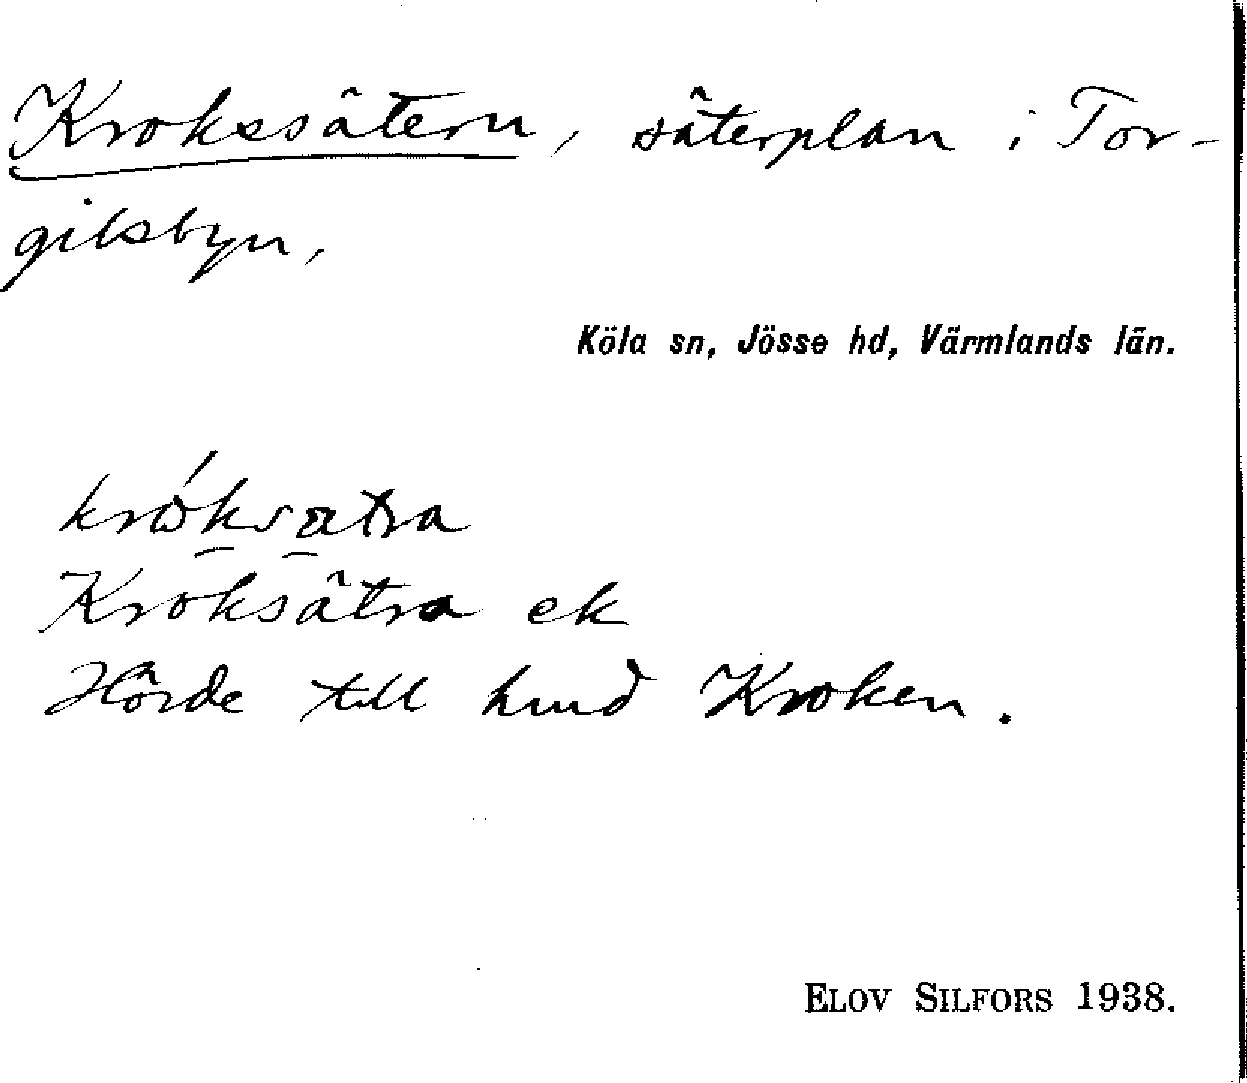 Krokssätern, säterplan i Tor-
gilsbyn,
Köla sn, Jösse hd, Värmlands län.
Kroksätra ek
Hörde till hmd Kroken.
ELOV SILFORS 1938.